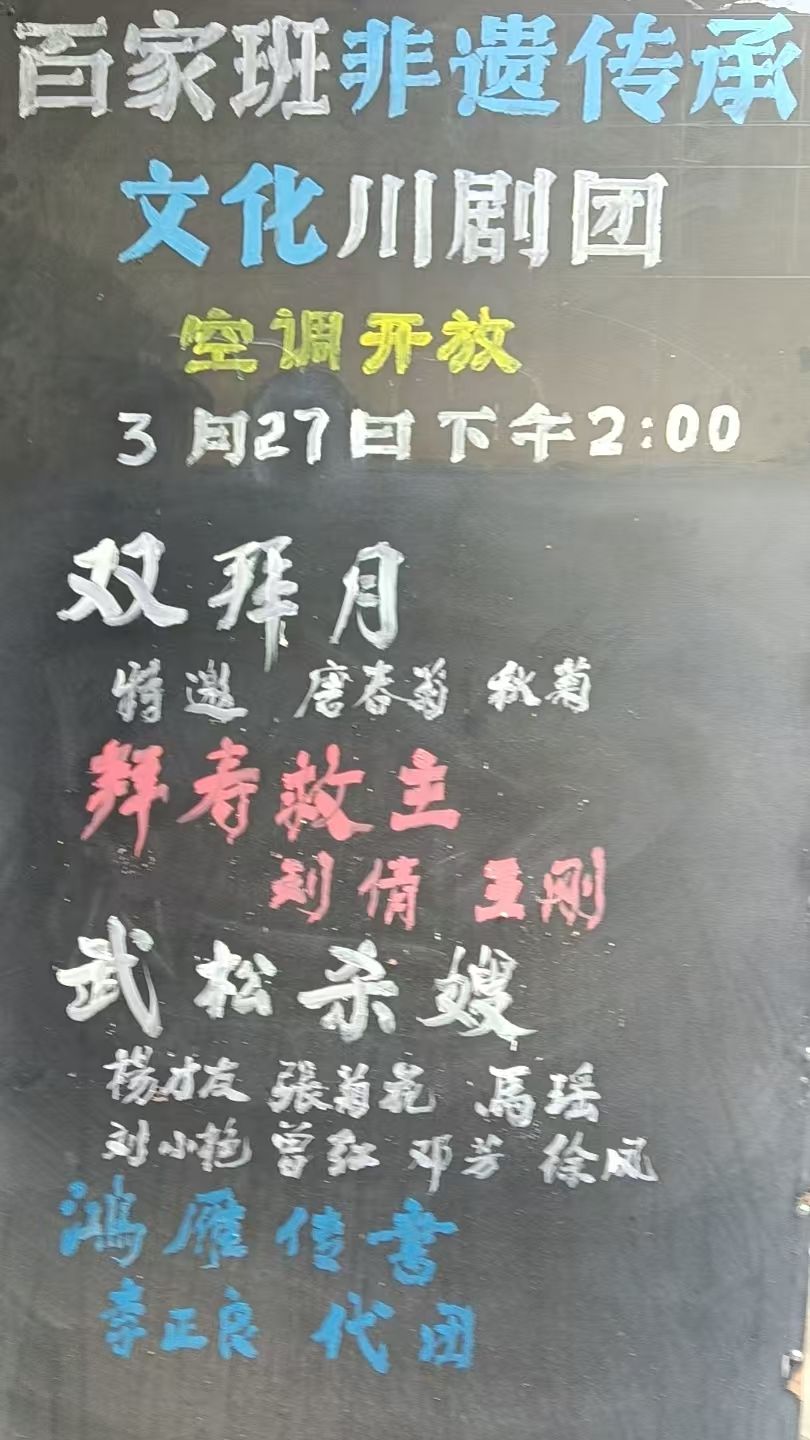 百家班非遗传承
文化川剧团
空调开放
3月27日下午2:00
双拜月
特邀 唐春翁 秋菊
拜寿救主
刘倩 王刚
武松杀嫂
楊才友 張菊花 馬瑶
刘小艳 曾红 邓芳 徐凤
鴻雁传書
李正良 代团